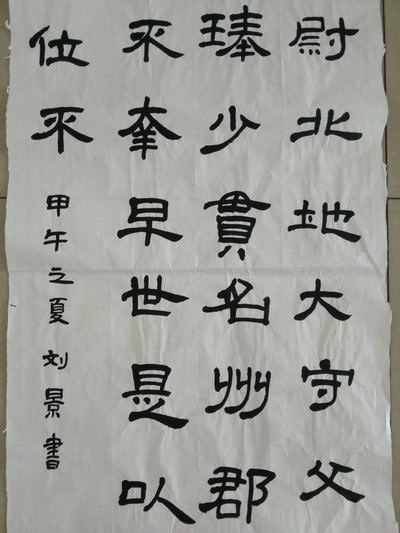 尉北地大守父
琫少貫名州郡
不幸早世是以
位不
甲午之夏刘景書